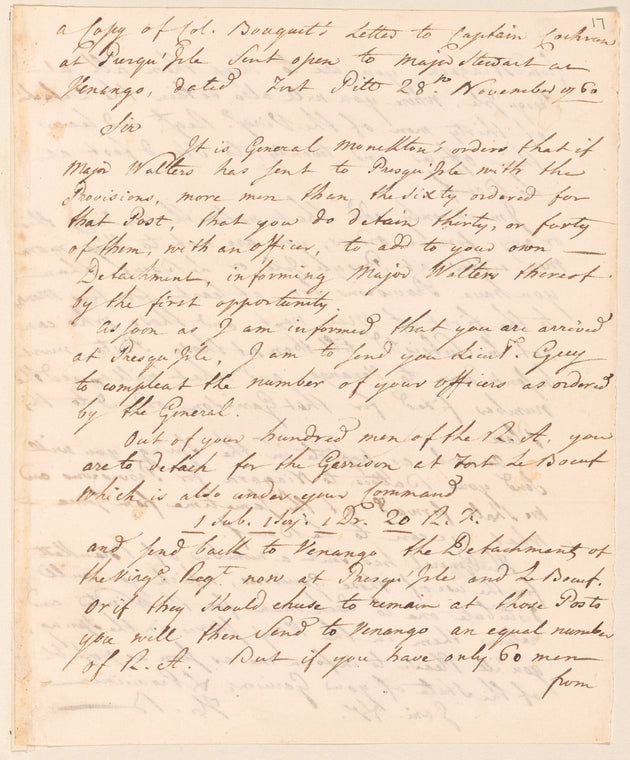 17
a Copy of Col. Bouquet's Letter to Captain Cochran
at Presqu'Isle Sent open to Major Stewart at
Venango, dated Fort Pitt 28.th November 1760
Sir
It is General Monckton's orders that if
Major Walters has sent to Presqu'Isle with the
Provisions, more men than the sixty ordered for
that Post, that you do detain thirty, or forty
of them, with an officer, to add to your own
Detachment, informing Major Walters thereof
by the first opportunity
as soon as I am informed that you are arrived
at Presqu'Isle, I am to send you Lieut.
to compleat the number of your officers as ordered
by the General.
Out of your hundred men of the R. A. you
are to detach for the Garrison at Fort Le Boeuf
which is also under your Command
1 Sub. 1 Serj. 1 Dr. 20 R. F.
and send back to Venango the Detachments of
the Virga. Regt. now at Presqu'Isle and Le Boeuf.
or if they should chuse to remain at those Posts
you will then Send to Venango an equal number
of R. A. But if you have only 60 men
from